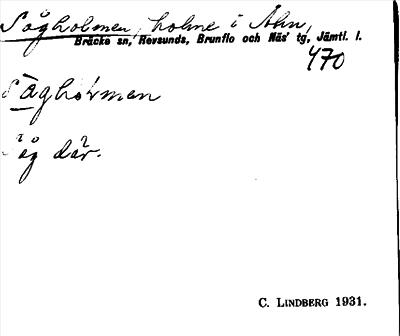 Sågholmen, holme i Åhn,
Bräcke sn, Revsunds, Brunflo och Näs' tg, Jämtl. l.
470
Såghoḷmen
Såg där.
C. LINDBERG 1931.